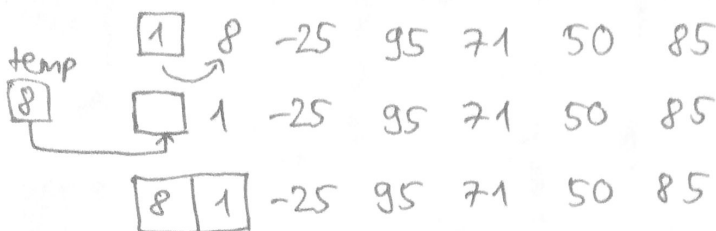 1 8 -25 95 71 50 85
temp
8 1 -25 95 71 50 85
8 1 -25 95 71 50 85